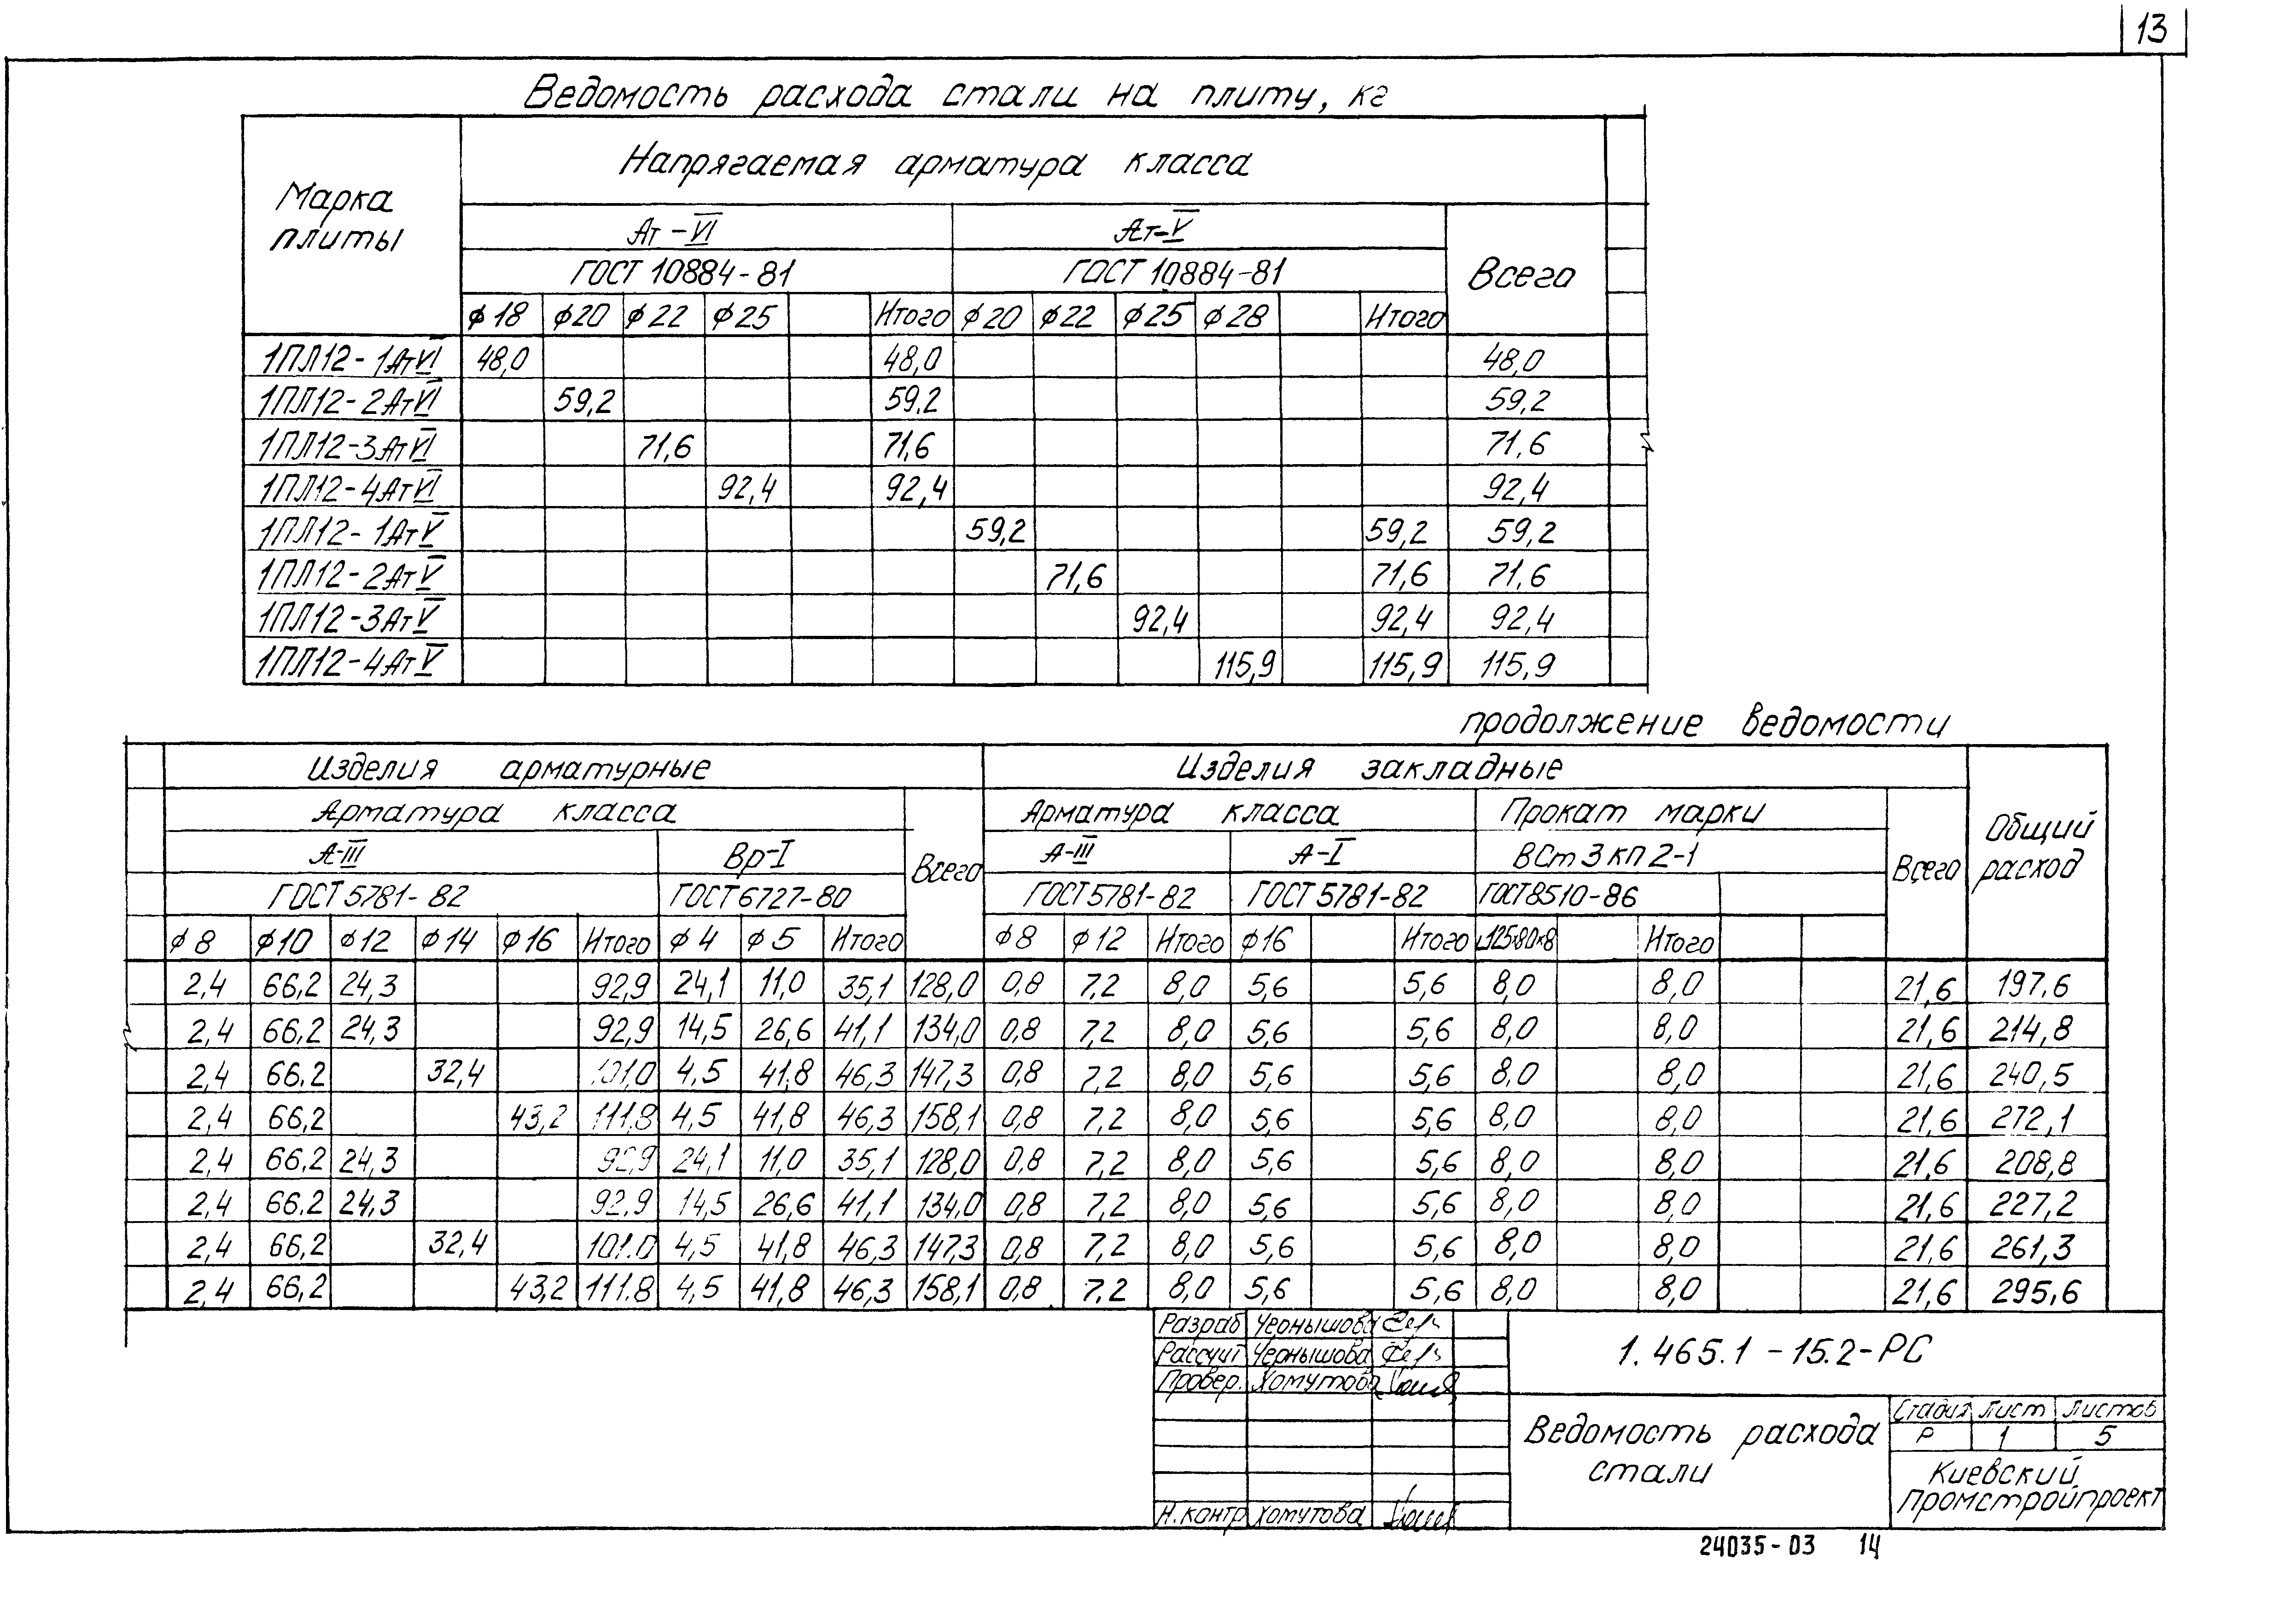 13
Ведомость расхода стали на плиту, кг
Марка плиты
Напрягаемая арматура класса
Ат-VI Ат-V Всего
ГОСТ 10884-81 ГОСТ 10884-81
ϕ18 ϕ20 ϕ22 ϕ25 Итого ϕ20 ϕ22 ϕ25 ϕ28 Итого
1ПЛ12-1АтVI 48,0 48,0 48,0
1ПЛ12-2АтVI 59,2 59,2 59,2
1ПЛ12-3АтVI 71,6 71,6 71,6
1ПЛ12-4АтVI 92,4 92,4 92,4
1ПЛ12-1АтV 59,2 59,2 59,2
1ПЛ12-2АтV 71,6 71,6 71,6
1ПЛ12-3АтV 92,4 92,4 92,4
1ПЛ12-4АтV 115,9 115,9 115,9
продолжение ведомости
Изделия арматурные Изделия закладные Общий расход
Арматура класса Всего Арматура класса Прокат марки Всего
А-III Вр-I А-III А-I ВСт3кп2-1
ГОСТ 5781-82 ГОСТ 6727-80 ГОСТ 5781-82 ГОСТ 5781-82 ГОСТ 8510-86
ϕ8 ϕ10 ϕ12 ϕ14 ϕ16 Итого ϕ4 ϕ5 Итого ϕ8 ϕ12 Итого ϕ16 Итого ∟125х80х8 Итого
2,4 66,2 24,3 92,9 24,1 11,0 35,1 128,0 0,8 7,2 8,0 5,6 5,6 8,0 8,0 21,6 197,6
2,4 66,2 24,3 92,9 14,5 26,6 41,1 134,0 0,8 7,2 8,0 5,6 5,6 8,0 8,0 21,6 214,8
2,4 66,2 32,4 101,0 4,5 41,8 46,3 147,3 0,8 7,2 8,0 5,6 5,6 8,0 8,0 21,6 240,5
2,4 66,2 43,2 111,8 4,5 41,8 46,3 158,1 0,8 7,2 8,0 5,6 5,6 8,0 8,0 21,6 272,1
2,4 66,2 24,3 92,9 24,1 11,0 35,1 128,0 0,8 7,2 8,0 5,6 5,6 8,0 8,0 21,6 208,8
2,4 66,2 24,3 92,9 14,5 26,6 41,1 134,0 0,8 7,2 8,0 5,6 5,6 8,0 8,0 21,6 227,2
2,4 66,2 32,4 101,0 4,5 41,8 46,3 147,3 0,8 7,2 8,0 5,6 5,6 8,0 8,0 21,6 261,3
2,4 66,2 43,2 111,8 4,5 41,8 46,3 158,1 0,8 7,2 8,0 5,6 5,6 8,0 8,0 21,6 295,6
Разраб Чернышова
Рассчит Чернышова
Провер. Хомутова
Н.контр Хомутова
1.465.1-15.2-РС
Ведомость расхода
стали
Стадия Лист Листов
Р 1 5
Киевский
Промстройпроект
24035-03 14